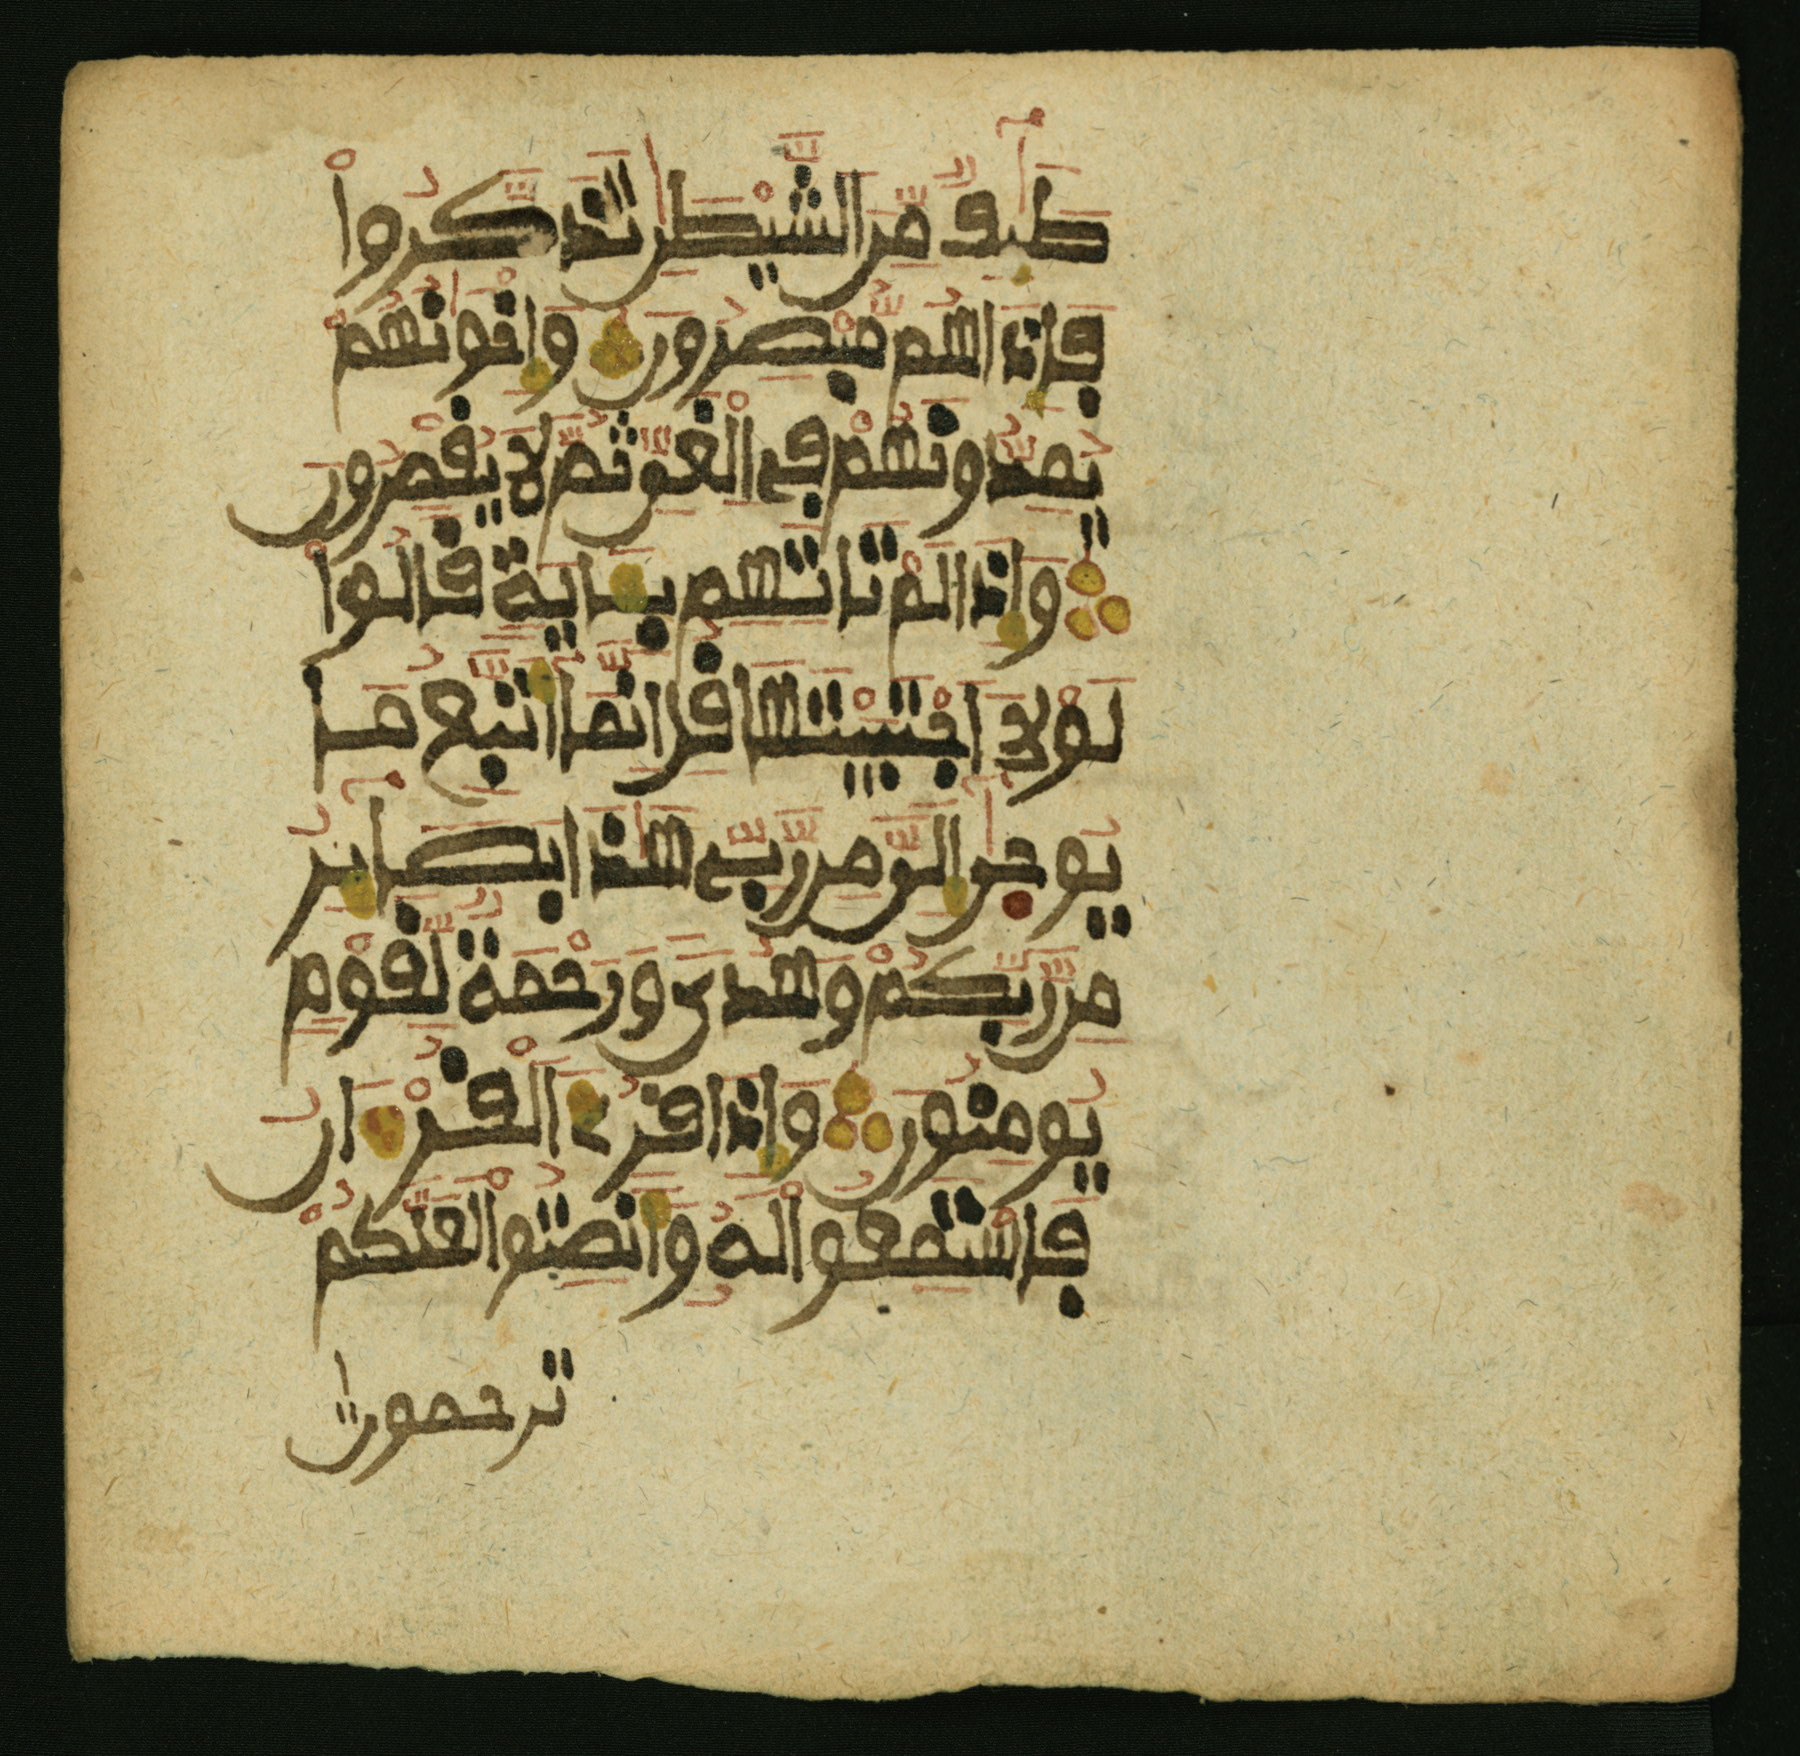 طَٰٓئِفٌ مِّنَ الشَّيْطَٰنِ تَذَكَّرُواْ
فَإِذَا هُم مُّبْصِرُونَ وَإِخْوَٰنُهُمْ
يُمِدُّونَهُمْ فِي الْغَيِّ ثُمَّ لَا يُقْصِرُونَ
وَإِذَا لَمْ تَاتِهِم بِـَٔايَةٍ قَالُواْ
لَوْلَا اجْتَبَيْتَهَا قُلِ انَّمَا أَتَّبِعُ مَا
يُوحَىٰٓ إِلَيَّ مِن رَّبِّي هَٰذَا بَصَآئِرُ
مِن رَّبِّكُمْ وَهُدًى وَرَحْمَةٌ لِّقَوْمٍ
يُومِنُونَ وَإِذَا قُرِئَ الْقُرْءَانُ
فَاسْتَمِعُواْ لَهُ وَأَنصِتُواْ لَعَلَّكُمْ
ترحمون